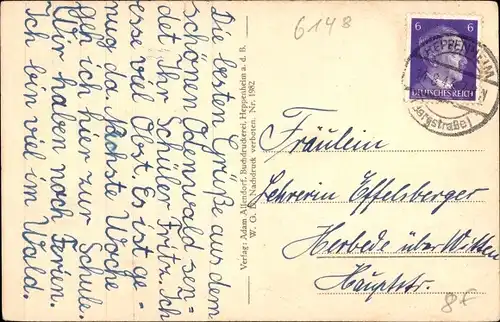 Die besten Grüße aus dem
schönen Odenwald sen-
det Ihr Schüler Fritz. Ich
esse viel Obst. Es ist ge-
nug da. Nächste Woche
geh ich hier zur Schule.
Wir haben noch Ferien.
Ich bin viel im Wald.
Verlag: Adam Allendorf, Buchdruckerei, Heppenheim a. d. B.
W. G. A. Nachdruck verboten. Nr. 1982
6148
6 6
DEUTSCHES REICH
HEPPENHEIM
Bergstraße
Fräulein
Lehrerin Effelsberger
Herbede über Witten
Hauptstr.
8€